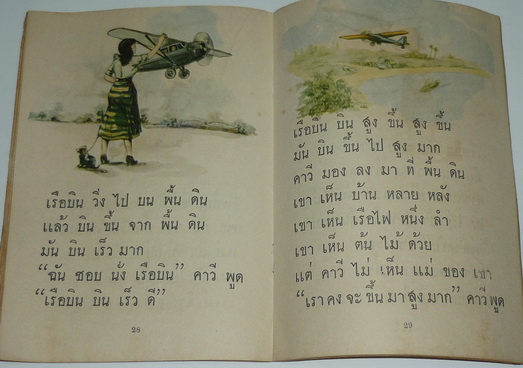 เรือบิน วิ่ง ไป บน พื้น ดิน
แล้ว บิน ขึ้น จาก พื้น ดิน
มัน บิน เร็ว มาก
“ฉัน ชอบ นั่ง เรือบิน” คาวี พูด
“เรือบิน บิน เร็ว ดี”
28
เรือบิน บิน สูง ขึ้น สูง ขึ้น
มัน บิน ขึ้น ไป สูง มาก
คาวี มอง ลง มา ที่ พื้น ดิน
เขา เห็น บ้าน หลาย หลัง
เขา เห็น เรือไฟ หนึ่ง ลำ
เขา เห็น ต้น ไม้ ด้วย
แต่ คาวี ไม่ เห็น แม่ ของ เขา
“เรา คง จะ ขึ้น มา สูง มาก” คาวี พูด
29